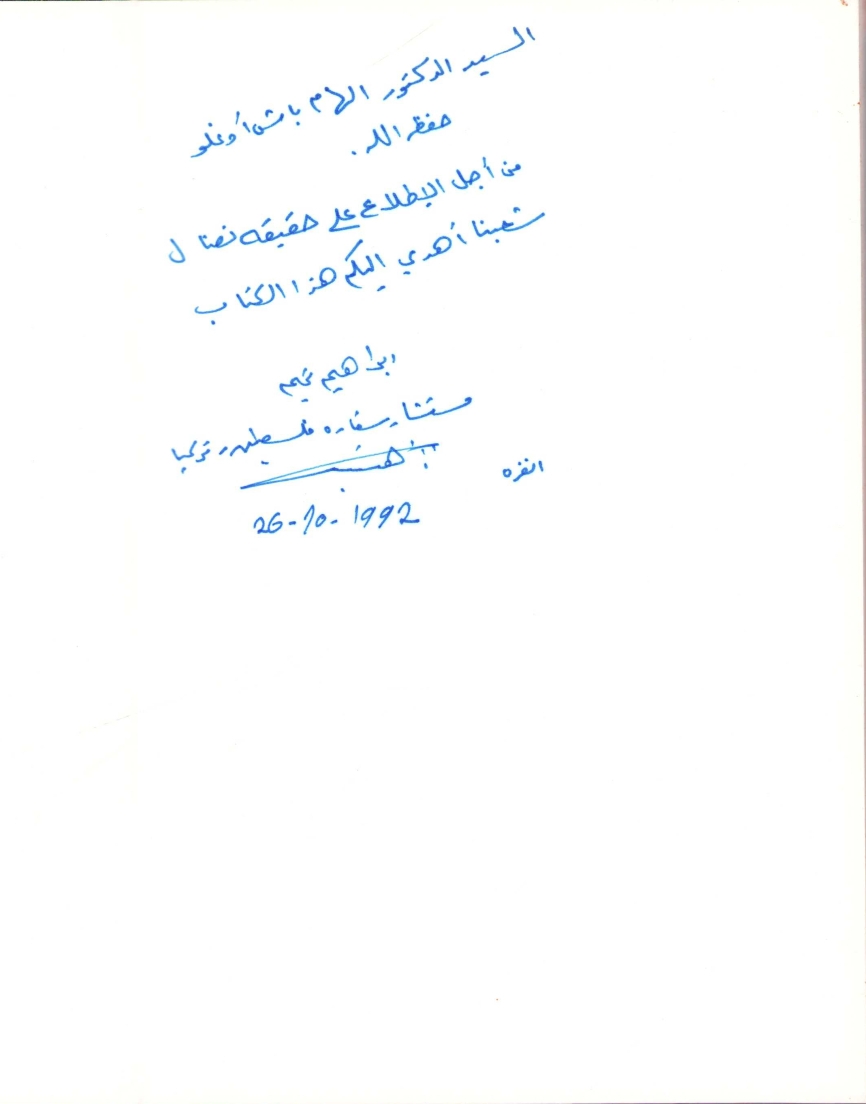 السيد الدكتور الهام باش أوغلو
حفظه الله.
من أجل الإطلاع على حقيقه نضال
شعبنا أهدي اليكم هذا الكتاب
ابراهيم تميم
مستشار سفاره فلسطين - تركيا
انقره
26-10-1992